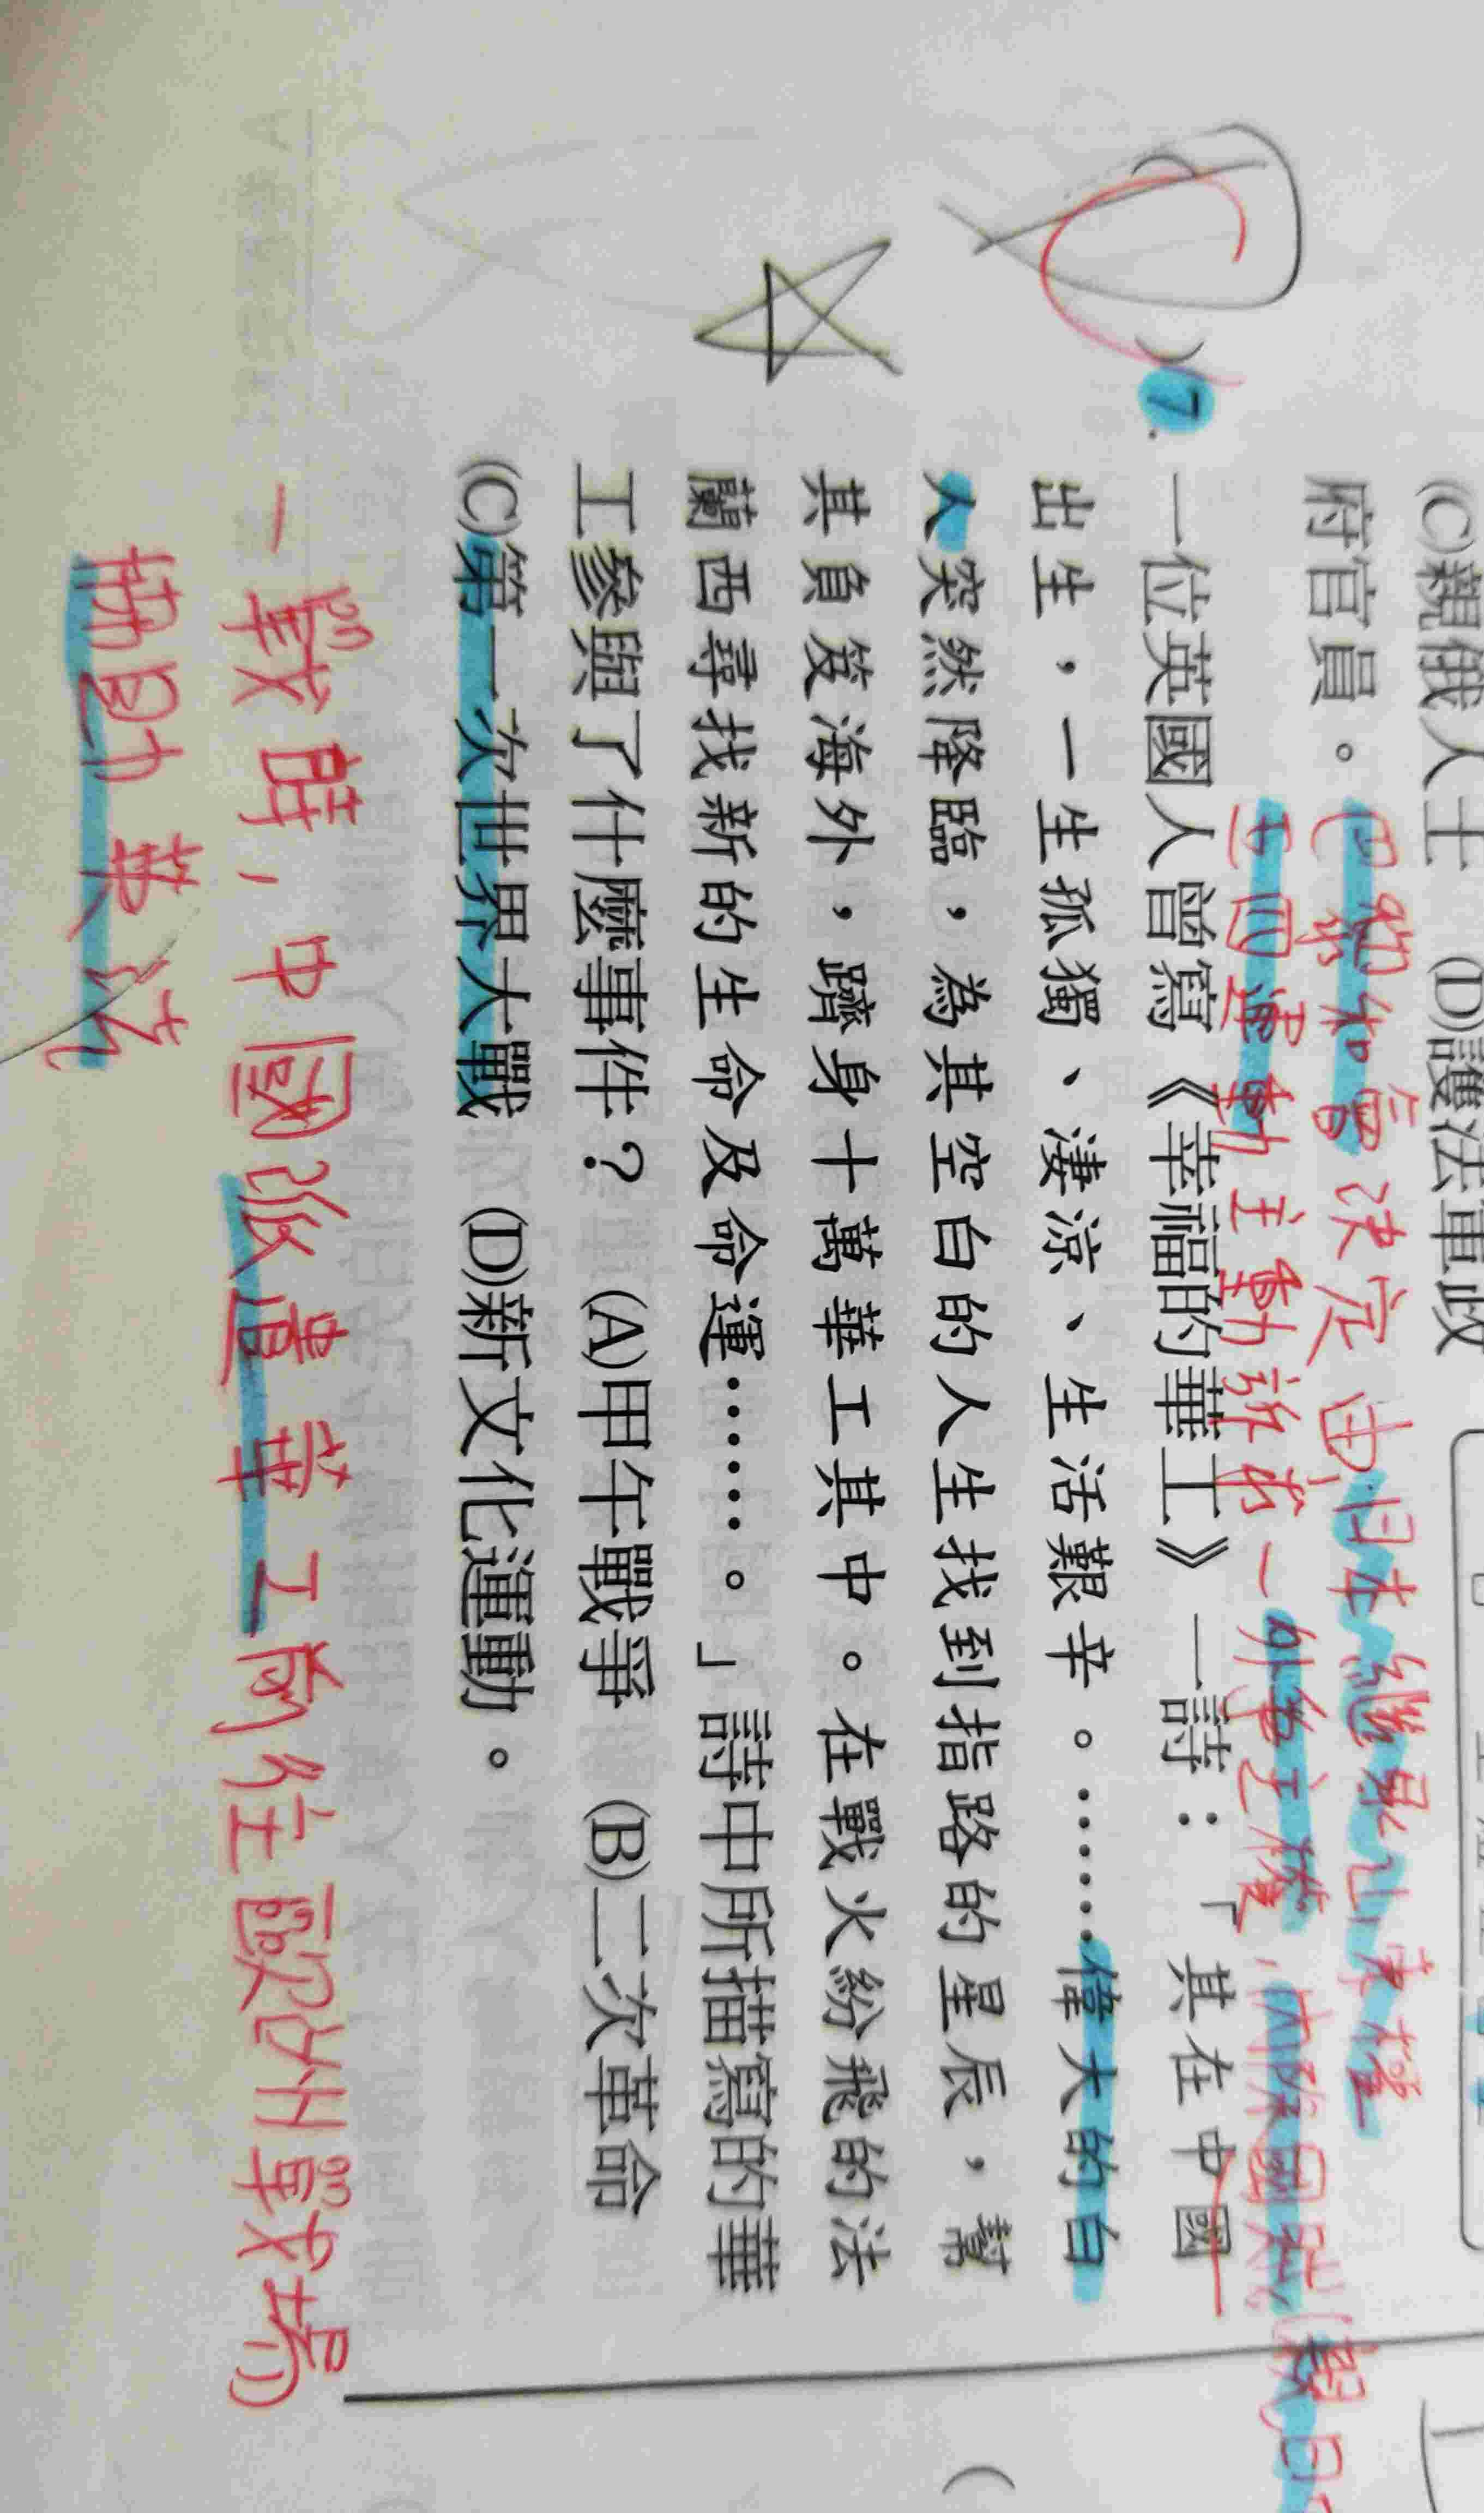 (C)親俄人士 (D)護法軍政
府官員。
巴黎和會決定由日本繼承山東權
五四運動主動訴求－外爭主權，內除國賊(親日
7.
一位英國人曾寫《幸福的華工》一詩：「其在中國
出生，一生孤獨、淒涼、生活艱辛。……偉大的白
人突然降臨，為其空白的人生找到指路的星辰，幫
其負笈海外，躋身十萬華工其中。在戰火紛飛的法
蘭西尋找新的生命及命運……。」詩中所描寫的華
工參與了什麼事件？ (A)甲午戰爭 (B)二次革命
(C)第一次世界大戰 (D)新文化運動。
一戰時，中國派遣華工前往歐洲戰場
協助英法